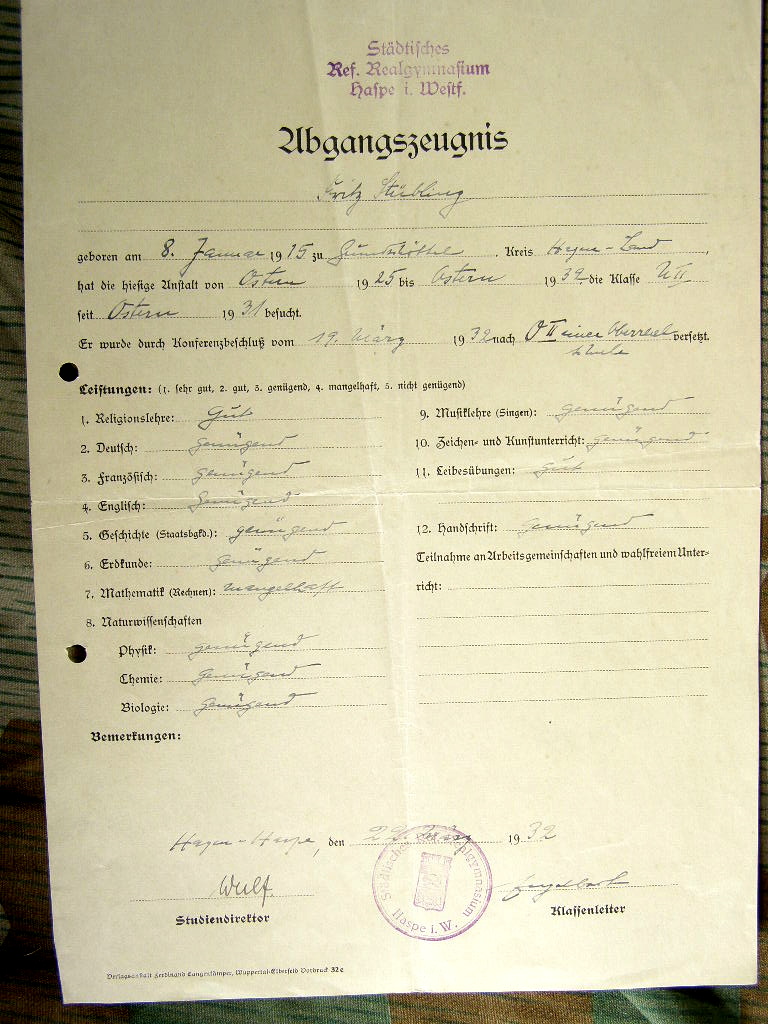 Städtisches
Ref. Realgymnasium
Haspe i. Westf.
Abgangszeugnis
Fritz Stübling
geboren am 8. Januar 1915 zu Kreis Hagen-Land,
hat die hiesige Anstalt von Ostern 1925 bis Ostern 1932, die Klasse U II
seit Ostern 1931 besucht.
Er wurde durch Konferenzbeschluß vom 19. März 1932 nach O II einer Oberreal versetzt.
schule
Leistungen: (1. sehr gut, 2. gut, 3. genügend, 4. mangelhaft, 5. nicht genügend)
1. Religionslehre: Gut
2. Deutsch: genügend
3. Französisch: genügend
4. Englisch: Genügend
5. Geschichte (Staatsbgkd.): genügend
6. Erdkunde: genügend
7. Mathematik (Rechnen): mangelhaft
8. Naturwissenschaften
Physik: genügend
Chemie: Genügend
Biologie: genügend
9. Musiklehre (Singen): genügend
10. Zeichen- und Kunstunterricht: genügend
11. Leibesübungen: Gut
12. Handschrift: Genügend
Teilnahme an Arbeitsgemeinschaften und wahlfreiem Unter-
richt:
Bemerkungen:
Hagen-Haspe, den 22. März 1932
Wulf.
Studiendirektor
Klassenleiter
Städtisches Realgymnasium
Haspe i. W.
Verlagsanstalt Ferdinand Langenkämper, Wuppertal-Elberfeld Vordruck 32e